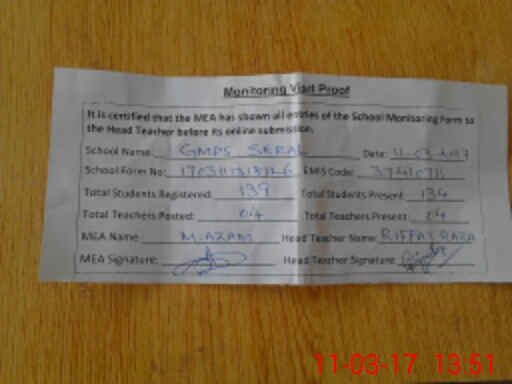 Monitoring Visit Proof
It is certified that the MEA has shown all entries of the School Monitoring Form to
the Head Teacher before its online submission.
School Name: GMPS SERAL Date: 11-03-2017
School Form No: EMIS Code:
Total Students Registered: 139 Total Students Present: 134
Total Teachers Posted: 04 Total Teachers Present: 04
MEA Name M. AZAM Head Teacher Name: RIFFAT RAZA
MEA Signature: Head Teacher Signature:
11-03-17 13:51